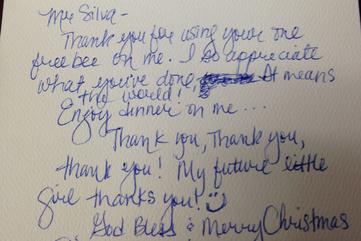 Mr Silva -
Thank you for using your one
free bee on me. I so appreciate
what you've done, It means
the world!
Enjoy dinner on me...
Thank you, Thank you,
thank you! My future little
girl thanks you!
God Bless & Merry Christmas